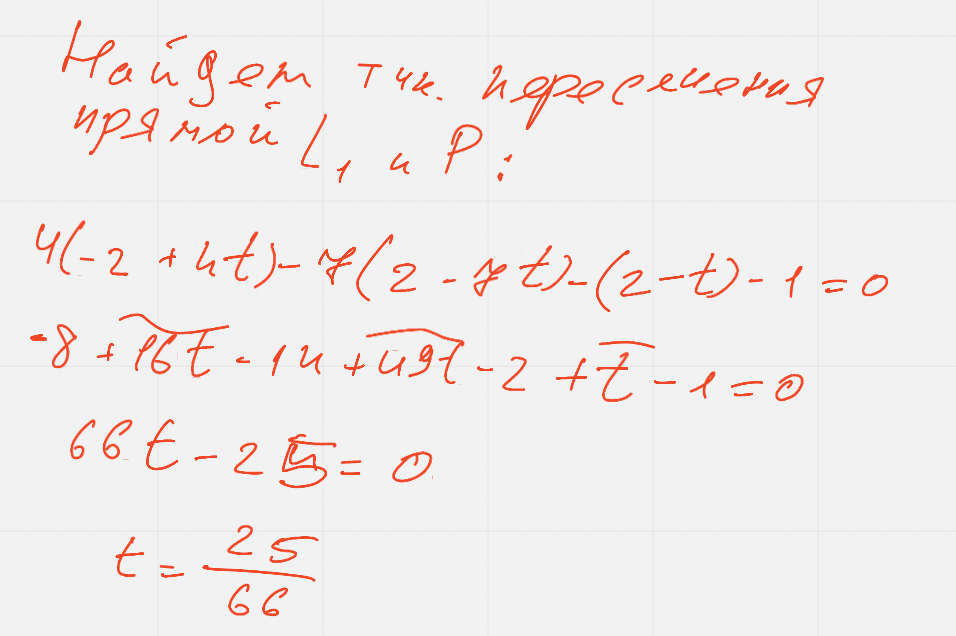 Найдем тчк. пересечения
прямой L₁ и P:
4(-2 + 4t) - 7(2 - 7t) - (2 - t) - 1 = 0
-8 + 16t - 14 + 49t - 2 + t - 1 = 0
66t - 25 = 0
t = 25/66